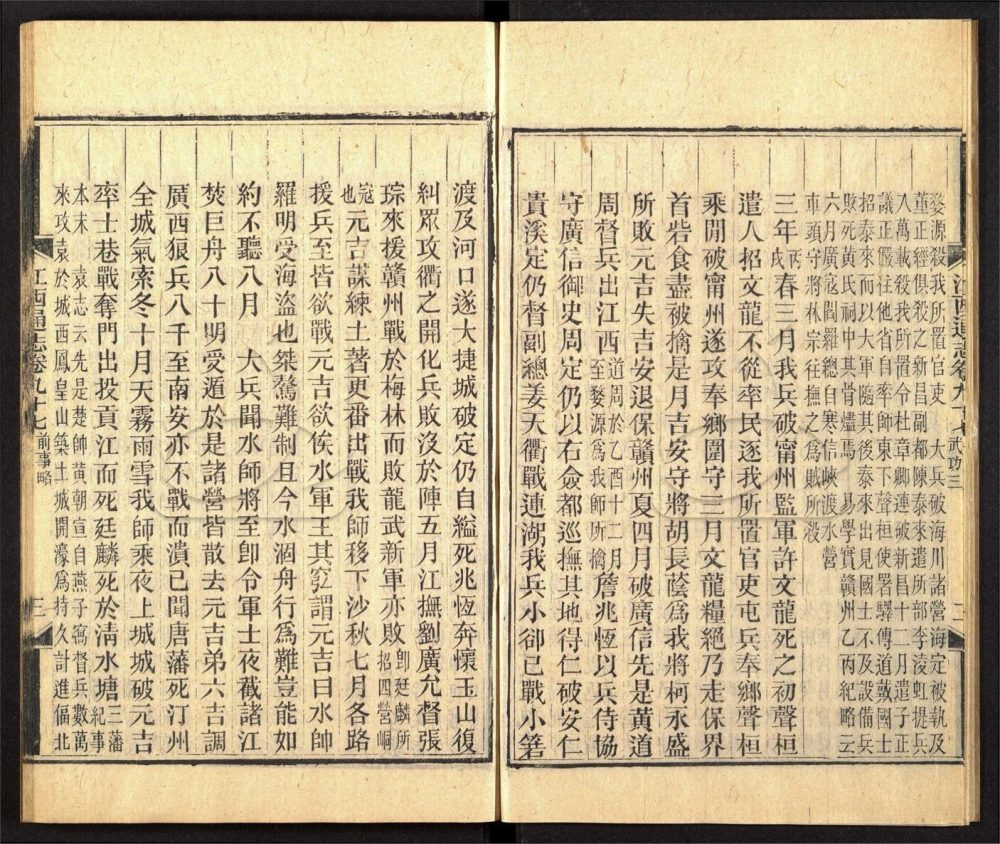 婺源殺我所置官吏　大兵破海川諸營海定被執及
董正經俱殺之新昌副都陳泰來遣所部李淩虹提兵
八萬載殺我所置令杜章卿連破新昌十二月遣子正
議正儼往他省自率師東下聲桓使署驛傳道戴國士
招泰來而以大軍隨其後泰來出見國士不及設備兵
敗死黃氏祠中其骨燼焉　易學實贛州乙丙紀略云
六月廣宼閻羅總自寒信峽渡水營
車頭守將林宗往撫之爲賊所殺
三年丙戌春三月我兵破甯州監軍許文龍死之初聲桓
遣人招文龍不從率民逐我所置官吏屯兵奉鄉聲桓
乘閒破甯州遂攻奉鄉圍守三月文龍糧絕乃走保界
首砦食盡被擒是月吉安守將胡長蔭爲我將柯永盛
所敗元吉失吉安退保贛州夏四月破廣信先是黃道
周督兵出江西道周於乙酉十二月至婺源爲我師所擒詹兆恆以兵侍協
守廣信御史周定仍以右僉都巡撫其地得仁破安仁
貴溪定仍督副總姜天衢戰連湖我兵小卻已戰小箬
江西通志卷九十七　武功三　二
渡及河口遂大捷城破定仍自縊死兆恆奔懷玉山復
糾眾攻衢之開化兵敗沒於陣五月江撫劉廣允督張
琮來援贛州戰於梅林而敗龍武新軍亦敗卽廷麟所招四營峒
寇也元吉謀練土著更番出戰我師移下沙秋七月各路
援兵至皆欲戰元吉欲俟水軍王其窊謂元吉曰水帥
羅明受海盜也桀驁難制且今水涸舟行爲難豈能如
約不聽八月　大兵聞水師將至卽令軍士夜截諸江
焚巨舟八十明受遁於是諸營皆散去元吉弟六吉調
廣西狼兵八千至南安亦不戰而潰已聞唐藩死汀州
全城氣索冬十月天霧雨雪我師乘夜上城城破元吉
率士巷戰奪門出投貢江而死廷麟死於淸水塘三藩紀事
本末　袁志云先是楚帥黃朝宣自燕子窩督兵數萬
來攻袁於城西鳳皇山築土城開濠爲持久計進偪北
江西通志卷九十七　前事略　三